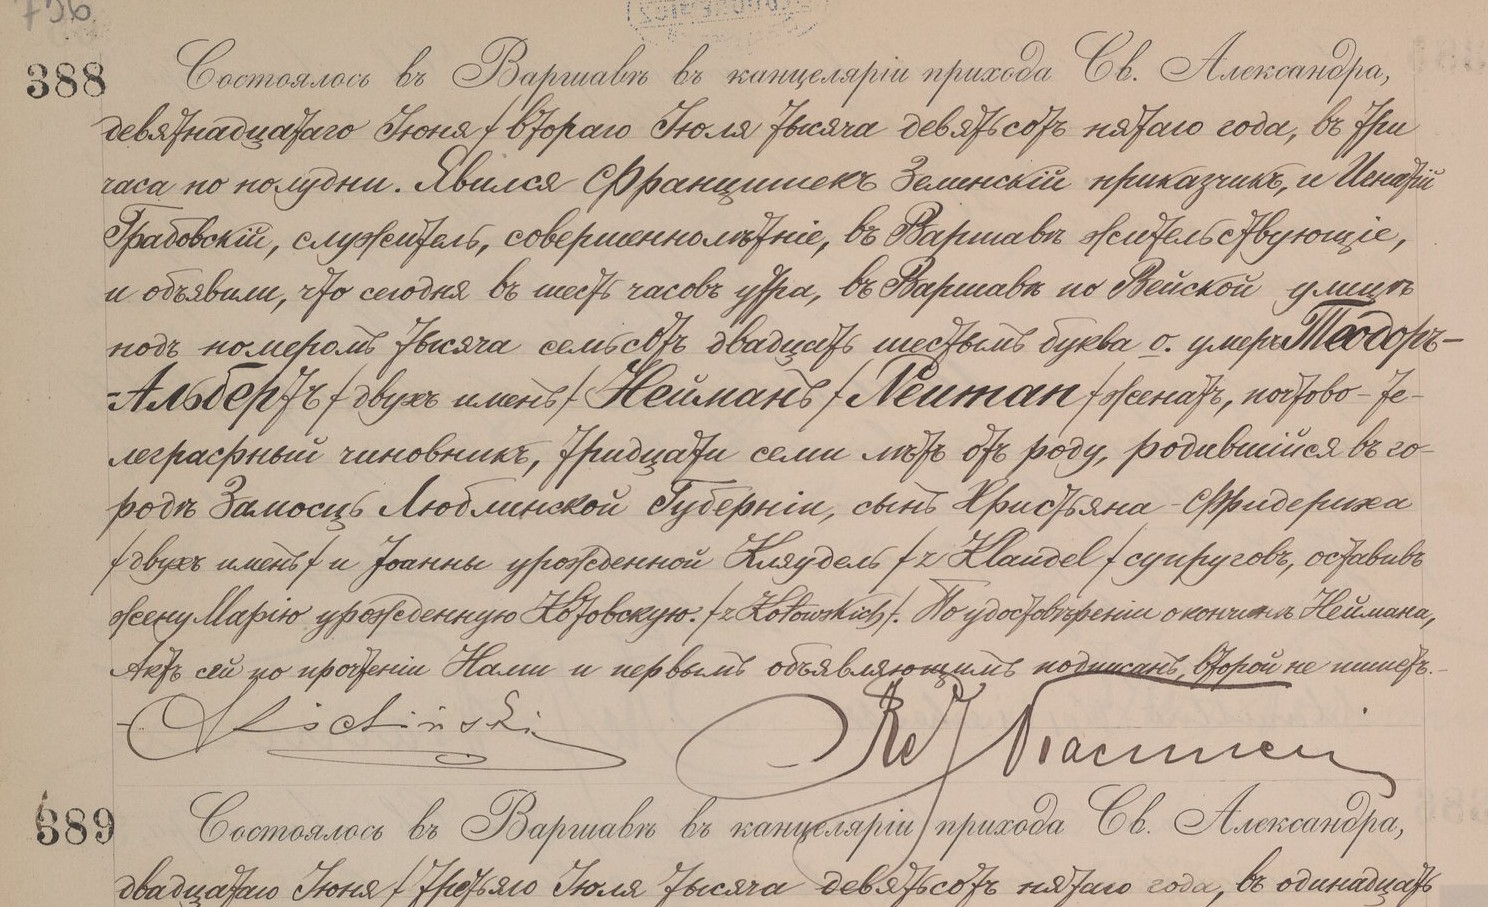 388 Состоялось въ Варшавѣ въ канцеляріи прихода Св. Александра,
девятнадцатаго Іюня / втораго Іюля тысяча девятьсотъ пятаго года, въ три
часа по полудни. Явился Францишекъ Земинскій приказчикъ, и Игнатій
Грабовскій, служитель, совершеннолѣтніе, въ Варшавѣ жительствующіе,
и объявили, что сегодня въ шесть часовъ утра, въ Варшавѣ по Вейской улицѣ
подъ номеромъ тысяча семьсотъ двадцать шестымъ буква о. умеръ Теодоръ-
-Альбертъ / двухъ именъ / Нейманъ / Neuman / женатъ, почтово-те-
леграфный чиновникъ, тридцати семи лѣтъ отъ роду, родившійся въ го-
родѣ Замосць Люблинской Губерніи, сынъ Христьяна-Фридериха
/ двухъ именъ / и Іоанны урожденной Кляудель / z Klaudel / супруговъ, оставивъ
жену Марію урожденную Котовскую. / z Kotowskich /. По удостовѣреніи о кончинѣ Неймана,
Актъ сей по прочтеніи Нами и первымъ объявляющимъ подписанъ, второй не пишетъ.-
389 Состоялось въ Варшавѣ въ канцеляріи прихода Св. Александра,
двадцатаго Іюня / третьяго Іюля тысяча девятьсотъ пятаго года, въ одинадцать